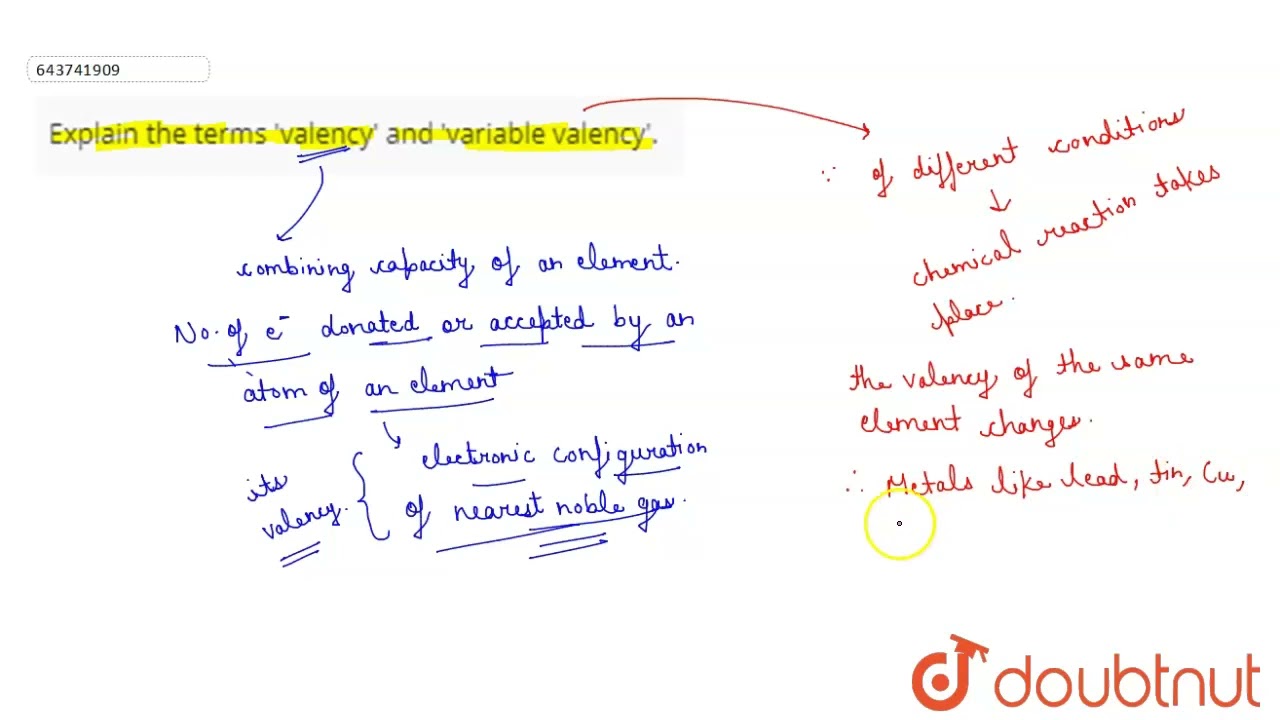 643741909
Explain the terms 'valency' and 'variable valency'.
combining capacity of an element.
No. of e⁻ donated or accepted by an
atom of an element
electronic configuration
of nearest noble gas.
its
valency.
∵ of different conditions
chemical reaction takes
place.
the valency of the same
element changes.
∴ Metals like lead, tin, Cu,
doubtnut